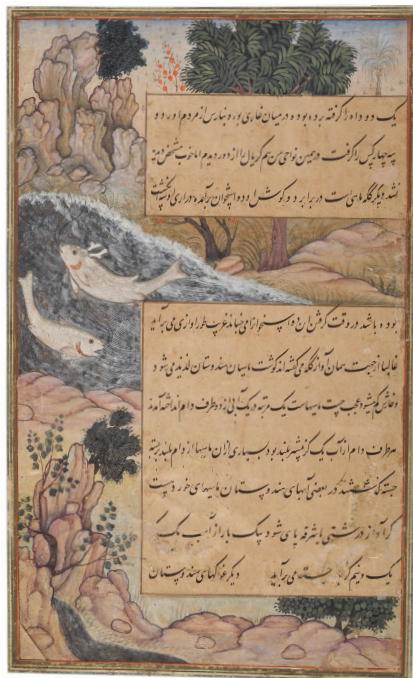 یک دو داه را گرفته برده بوده در میان غازی بود و بنارس از مردم اردو
سه چهار کس را گرفت در همین نواحی من هم گریال را از دور دیدم اما خوب مشخص دیده
نشد دیگر گله ماهی است در برابر دو گوش او دو استخوان برآمده درازی دو سه انگشت
بوده باشد در وقت گرفتن این دو استخوان را می جنباند غریب طور آوازی می برآید
غالبا از جهت همان آواز گله می گفته اند گوشت ماهیان هندوستان لذیذ می شود
عجب چست ماهیهاست یک مرتبه در یک آبی از دو طرف دام انداخته آمدند
هر طرف دام از آب یک گز بیشتر بلند بود بسیاری از آن ماهیها از دام بلند جسته
جسته گذشتند در بعضی آبهای هندوستان ماهیهای خورد است
اگر آواز درشتی یا شرفه پای شود یک بار از آب یک گز
یک و نیم گز جسته می برآید دیگر غوکهای هندوستان